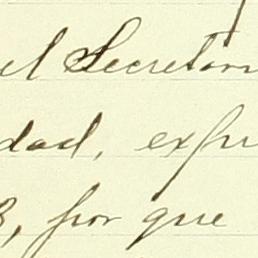 el Secretari
dad, expu
8, por que